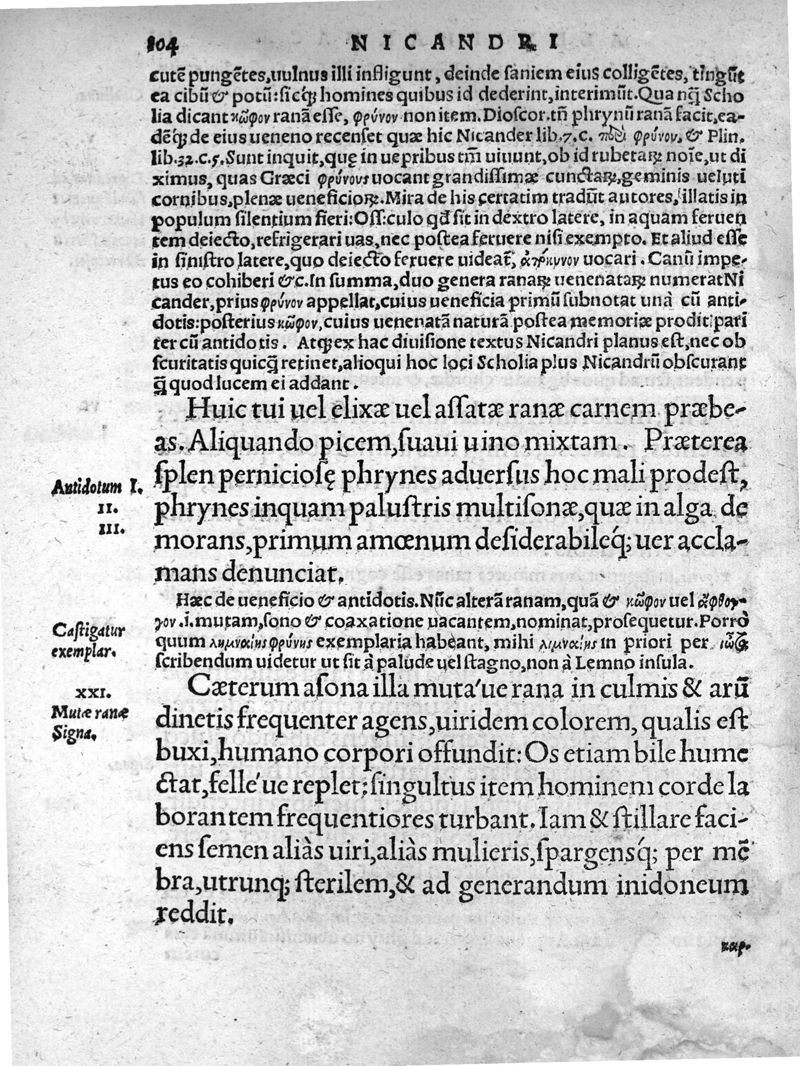 104 NICANDRI
cutē pungētes, uulnus illi infligunt, deinde ſaniem eius colligētes, tingūt
ea cibū & potū: ſicq́; homines quibus id dederint, interimūt. Qua nq̄ Scho
lia dicant κωφον ranā eſſe, φρύνον non item. Dioſcor. tñ phrynū ranā facit, ea-
dēq́; de eius ueneno recenſet quæ hic Nicander lib. 7. c. περὶ φρύνου, & Plin.
lib. 32. c. 5. Sunt inquit, quę in uepribus tm̄ uiuunt, ob id rubetaꝝ noīe, ut di
ximus, quas Græci φρύνους uocant grandiſſimæ cunctaꝝ, geminis ueluti
cornibus, plenæ ueneficioꝝ. Mira de his certatim tradūt autores, illatis in
populum ſilentium fieri: Oſſiculo qd̄ ſit in dextro latere, in aquam feruen
tem deiecto, refrigerari uas, nec poſtea feruere niſi exempto. Et aliud eſſe
in ſiniſtro latere, quo deiecto feruere uideat᷑, uocari. Canū impe-
tus eo cohiberi &c. In ſumma, duo genera ranaꝝ uenenataꝝ numerat Ni
cander, prius φρύνον appellat, cuius ueneficia primū ſubnotat unà cū anti-
dotis: poſterius κωφον, cuius uenenatā naturā poſtea memoriæ prodit pari
ter cū antidotis. Atq; ex hac diuiſione textus Nicandri planus eſt, nec ob
ſcuritatis quicq̄ retinet, alioqui hoc loci Scholia plus Nicandrū obſcurant
q̄ quod lucem ei addant.
Huic tui uel elixæ uel aſſatæ ranæ carnem præbe-
as. Aliquando picem, ſuaui uino mixtam. Præterea
Antidotum I. ſplen pernicioſę phrynes aduerſus hoc mali prodeſt,
II. phrynes inquam paluſtris multiſonæ, quæ in alga de
III. morans, primum amœnum deſiderabileq́; uer accla-
mans denunciat.
Hæc de ueneficio & antidotis. Nūc alterā ranam, quā & κωφον uel ἄφθογ-
Caſtigatur γον .i. mutam, ſono & coaxatione uacantem, nominat, proſequetur. Porrò
exemplar. quum λημναίης φρύνης exemplaria habeant, mihi λιμναίης in priori per ἰῶτα
ſcribendum uidetur ut ſit à palude uel ſtagno, non à Lemno inſula.
XXI. Cæterum aſona illa muta'ue rana in culmis & arū
Mutæ ranæ dinetis frequenter agens, uiridem colorem, qualis eſt
Signa. buxi, humano corpori offundit: Os etiam bile hume
ctat, felle'ue replet; ſingultus item hominem corde la
borantem frequentiores turbant. Iam & ſtillare faci-
ens ſemen aliàs uiri, aliàs mulieris, ſpargensq́; per mē
bra, utrunq; ſterilem, & ad generandum inidoneum
reddit.